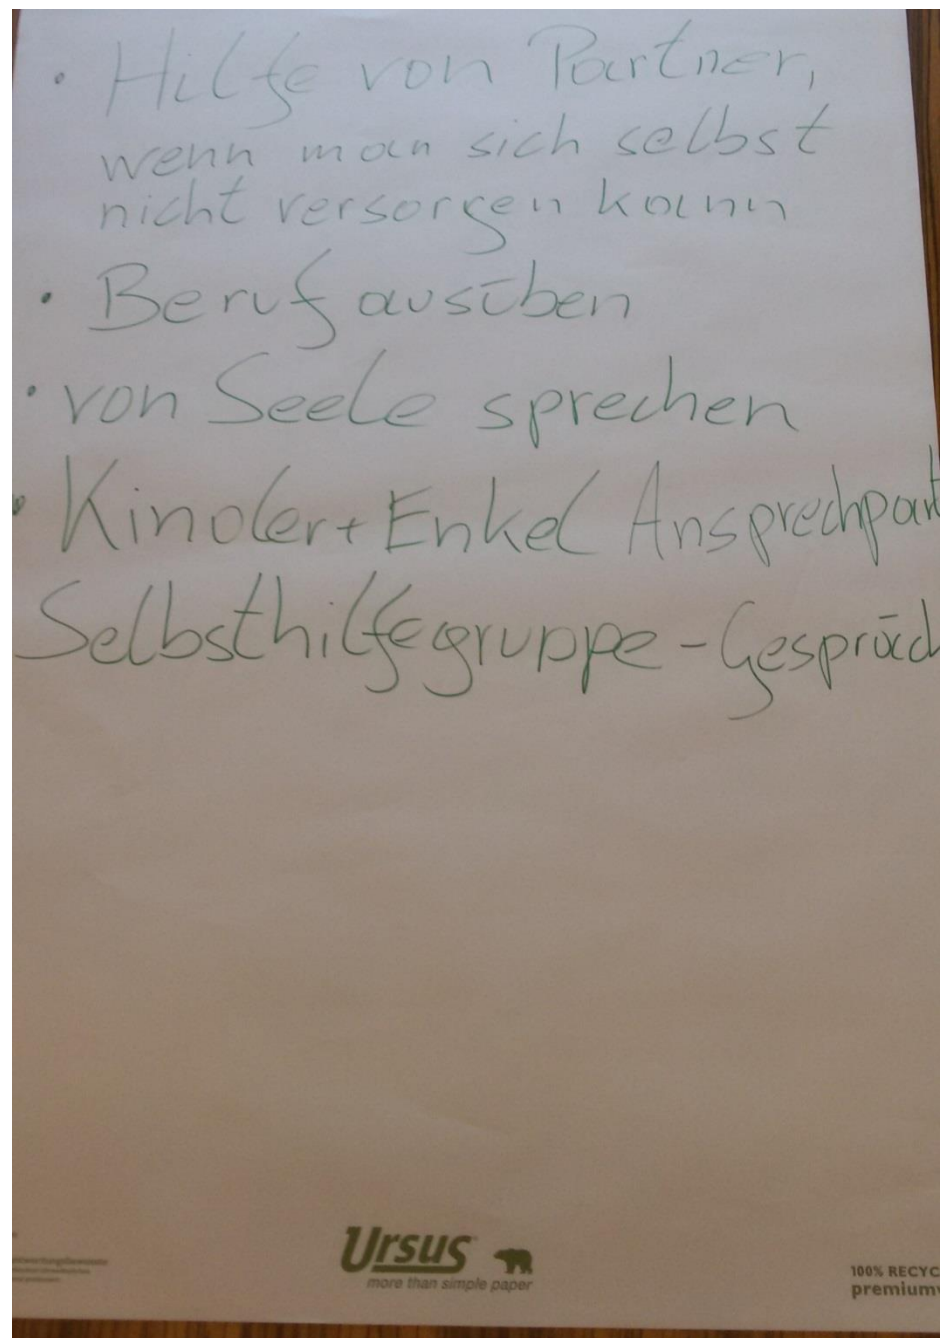 • Hilfe von Partner,
wenn man sich selbst
nicht versorgen kann
• Beruf ausüben
• von Seele sprechen
• Kinder + Enkel Ansprechpart
Selbsthilfegruppe - Gespräch
Ursus
more than simple paper
100% RECYC
premium